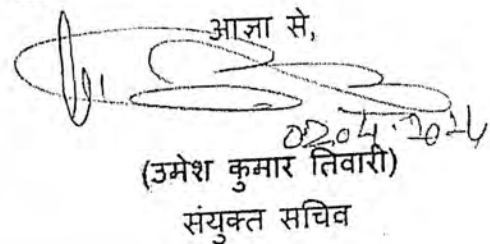 आज्ञा से,
02.04.2024
(उमेश कुमार तिवारी)
संयुक्त सचिव